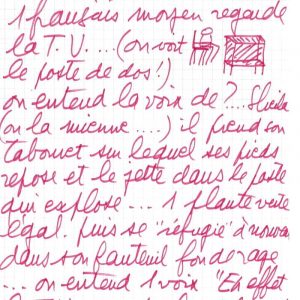 1 français moyen regarde
la T.V. ... (on voit
le poste de dos !)
on entend la voix de ?... Sheila
(ou la mienne ....) il prend son
tabouret sur lequel ses pieds
repose et le jette dans le poste
qui explose ... 1 plante verte
égal. puis se "réfugie" à nouveau
dans son fauteuil fou de rage
... on entend 1 voix "En effet